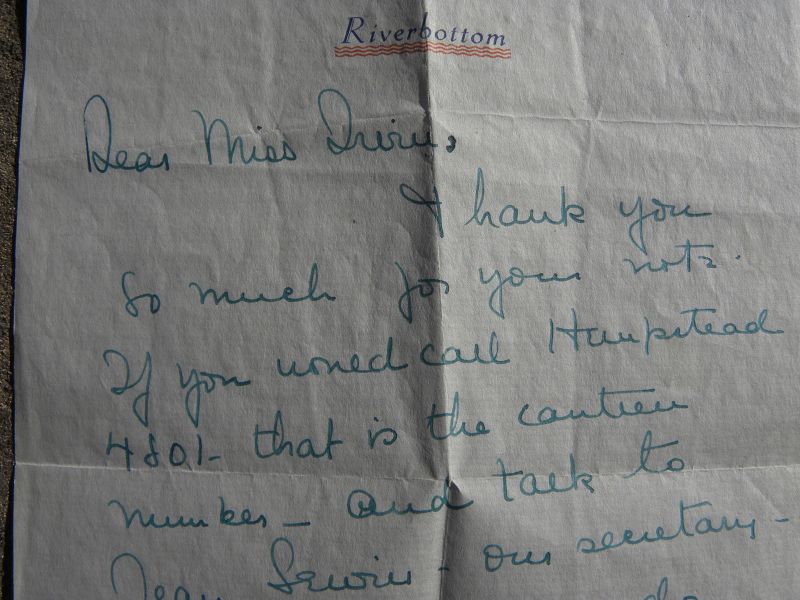 Riverbottom
Dear Miss
Thank you
so much for your note.
If you would call Hempstead
4801 - that is the canteen
number - and talk to
Jean - our secretary -